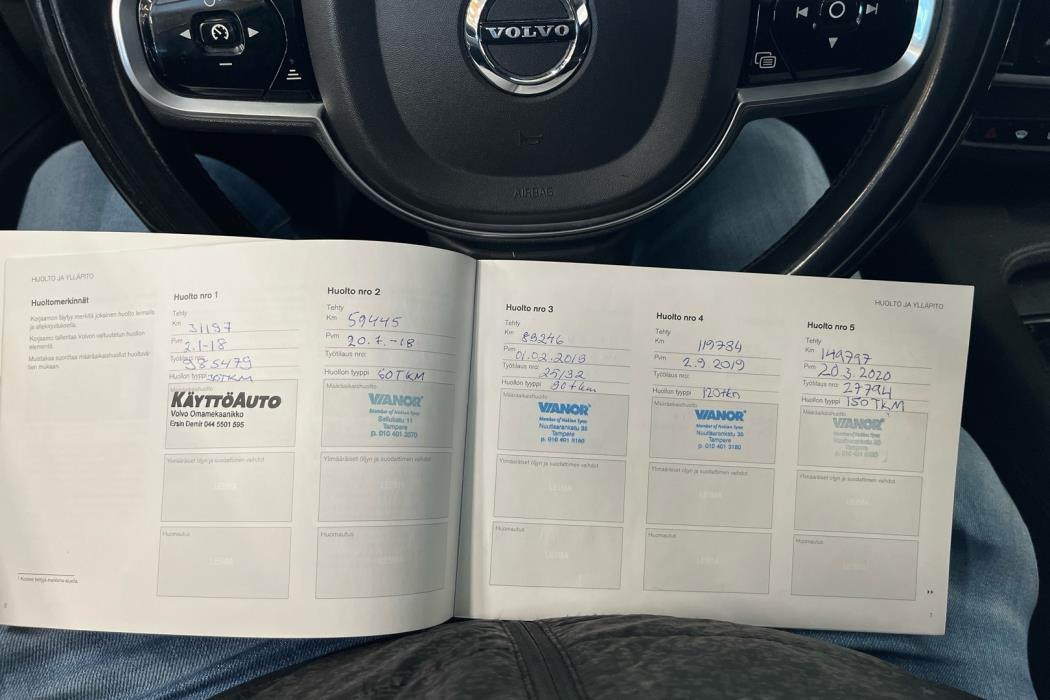 VOLVO
AIRBAG
HUOLTO JA YLLÄPITO
Huoltomerkinnät
Korjaamon täytyy merkitä jokainen huolto leimalla ja allekirjoituksella.
Huolto nro 1
Tehty
Km 31197
Pvm 2.1-18
Työtilaus nro: 385479
Huollon tyyppi 30TKM
Määräaikaishuolto
KÄYTTÖAUTO
Volvo Omamekaanikko
Ersin Demir 044 5501 595
Ylimääräiset öljyn ja suodattimen vaihdot
LEIMA
Huomautus
LEIMA
Huolto nro 2
Tehty
Km 59445
Pvm 20.7.-18
Työtilaus nro:
Huollon tyyppi 60TKM
Määräaikaishuolto
VIANOR
Member of Nokian Tyres
Sellukatu 11
Tampere
Ylimääräiset öljyn ja suodattimen vaihdot
LEIMA
Huomautus
LEIMA
HUOLTO JA YLLÄPITO
Huolto nro 3
Tehty
Km 89246
Pvm 01.02.2019
Työtilaus nro: 25132
Huollon tyyppi 90tkm
Määräaikaishuolto
VIANOR
Member of Nokian Tyres
Nuutisarankatu 35
Tampere
p. 010 401 3180
Ylimääräiset öljyn ja suodattimen vaihdot
LEIMA
Huomautus
LEIMA
Huolto nro 4
Tehty
Km 119784
Pvm 2.9.2019
Työtilaus nro:
Huollon tyyppi 120tkm
Määräaikaishuolto
VIANOR
Member of Nokian Tyres
Nuutisarankatu 35
Tampere
p. 010 401 3180
Ylimääräiset öljyn ja suodattimen vaihdot
LEIMA
Huomautus
LEIMA
Huolto nro 5
Tehty
Km 149797
Pvm 20.3.2020
Työtilaus nro: 27794
Huollon tyyppi 150TKM
Määräaikaishuolto
VIANOR
Member of Nokian Tyres
Nuutisarankatu 35
Tampere
Ylimääräiset öljyn ja suodattimen vaihdot
LEIMA
Huomautus
LEIMA